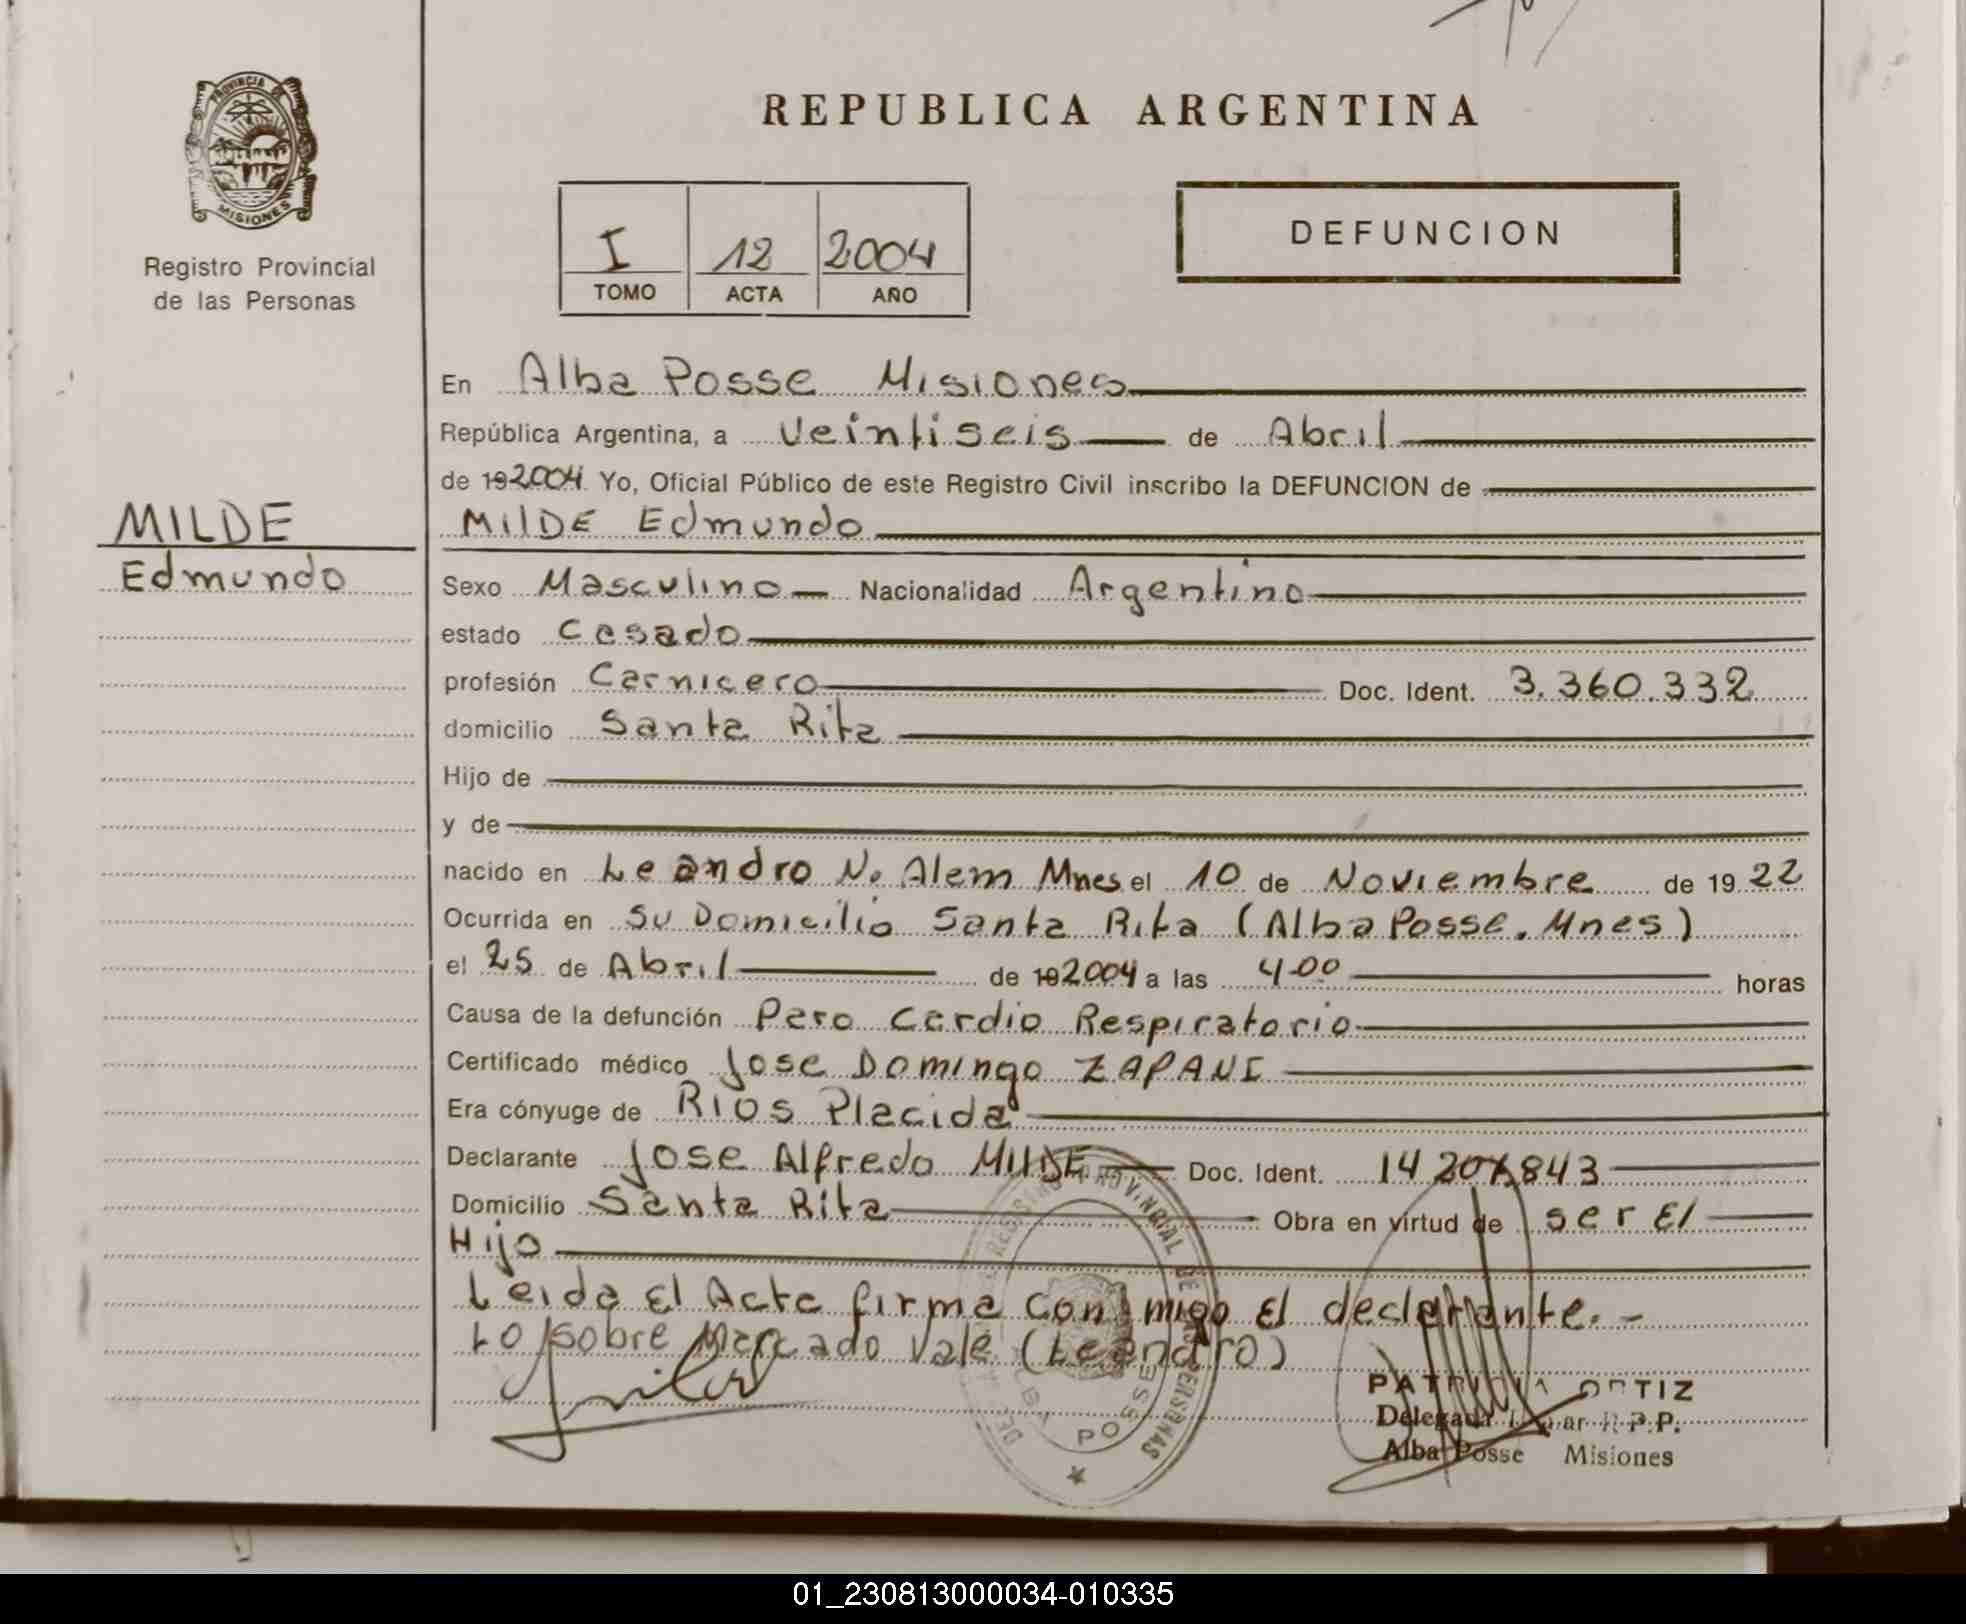 REPUBLICA ARGENTINA
PROVINCIA DE
MISIONES
Registro Provincial
de las Personas
I 12 2004
TOMO ACTA AÑO
DEFUNCION
MILDE
Edmundo
En Alba Posse Misiones
República Argentina, a Veintiseis de Abril
de 19 2004 Yo, Oficial Público de este Registro Civil inscribo la DEFUNCION de
MILDE Edmundo
Sexo Masculino Nacionalidad Argentino
estado Casado
profesión Carnicero Doc. Ident. 3.360.332
domicilio Santa Rita
Hijo de
y de
nacido en Leandro N. Alem Mnes el 10 de Noviembre de 19 22
Ocurrida en Su Domicilio Santa Rita (Alba Posse. Mnes)
el 25 de Abril de 19 2004 a las 4.00 horas
Causa de la defunción Paro Cardio Respiratorio
Certificado médico Jose Domingo ZAPANI
Era cónyuge de Rios Placida
Declarante Jose Alfredo MILDE Doc. Ident. 14 207.843
Domicilio Santa Rita Obra en virtud de ser El
Hijo
Leida El Acta firma conmigo El declarante.-
Lo sobre Marcado Vale (Leandro)
REGISTRO PROVINCIAL DE LAS PERSONAS
ALBA POSSE
PATRICIA ORTIZ
Delegada Titular R.P.P.
Alba Posse Misiones
01_230813000034-010335